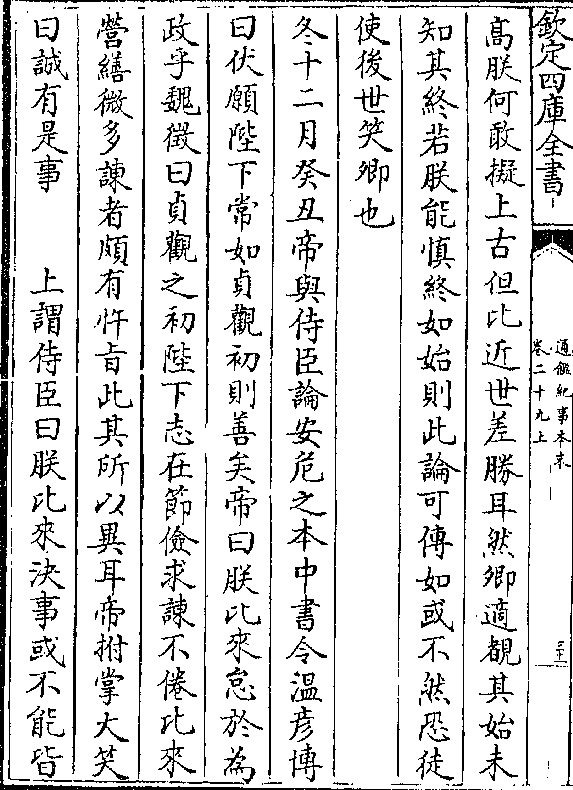 欽定四庫全書
通鑑紀事本末
卷二十九上
高朕何敢擬上古但比近世差勝耳然卿適覩其始未
知其終若朕能慎終如始則此論可傳如或不然恐徒
使後世笑卿也
冬十二月癸丑帝與侍臣論安危之本中書令溫彦博
曰伏願陛下常如貞觀初則善矣帝曰朕比來怠於為
政乎魏徵曰貞觀之初陛下志在節儉求諫不倦比來
營繕微多諫者頗有忤旨此其所以異耳帝拊掌大笑
曰誠有是事　　上謂侍臣曰朕比來決事或不能皆